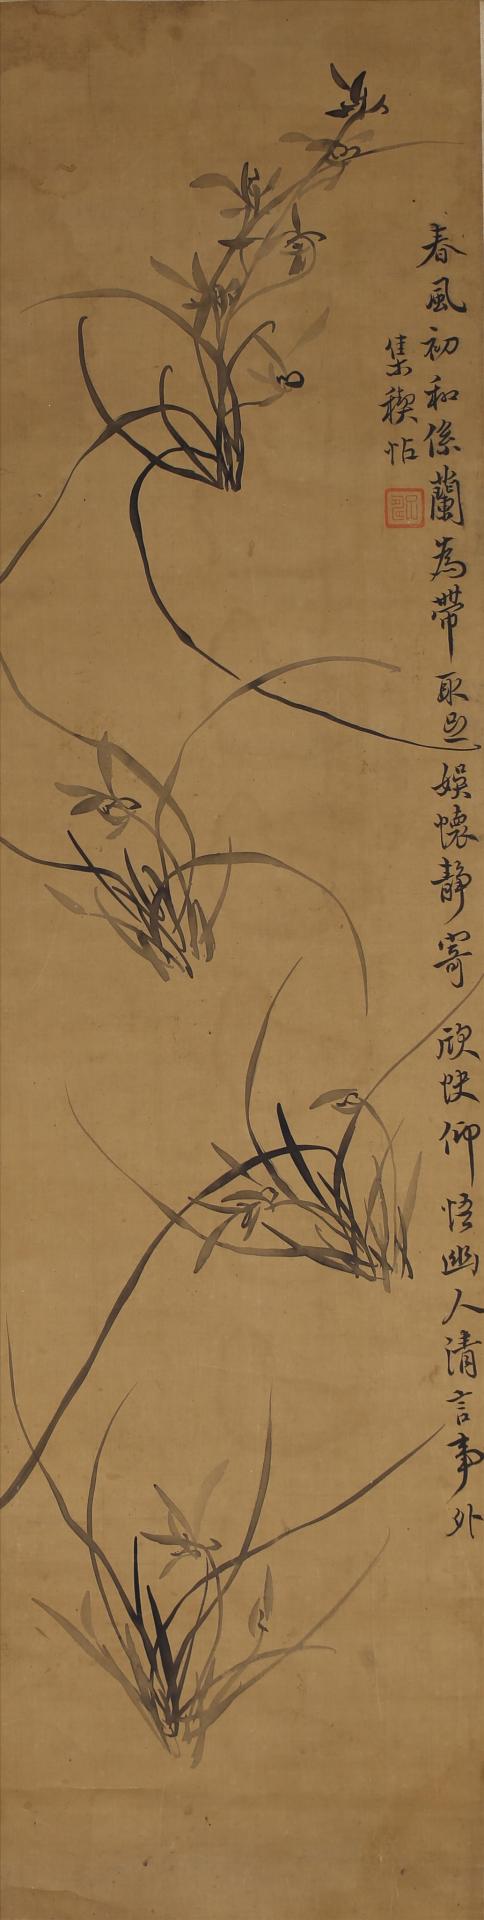 春風初和係蘭為帶取足娛懷靜寄欣快仰悟幽人清言事外
集稧帖